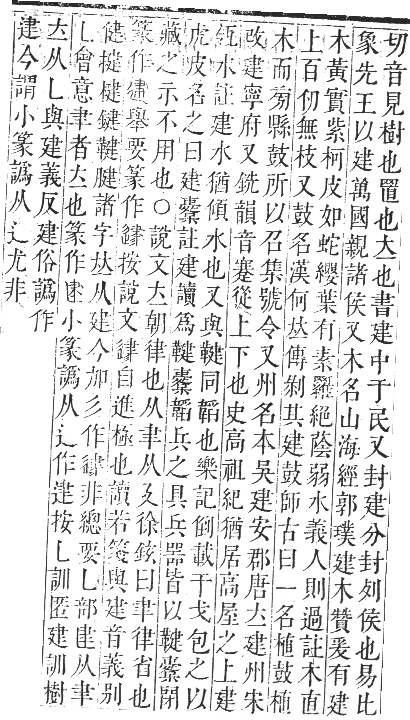 切音見樹也置也𡗓也書建中于民又封建分封列侯也易比
象先王以建萬國親諸侯又木名山海經郭璞建木贊爰有建
木黃實紫柯皮如蛇纓葉有素羅絕蔭弱水義人則過註木直
上百仞無枝又鼓名漢何𡗓傳剝其建鼓師古曰一名植鼓植
木而旁縣鼓所以召集號令又州名本吳建安郡唐𡗓建州宋
改建寧府又銑韻音蹇從上下也史高祖紀猶居高屋之上建
瓴水註建水猶傾水也又與鞬同韜也樂記倒載干戈包之以
虎皮名之曰建櫜註建讀為鞬櫜韜兵之具兵器皆以鞬櫜閉
藏之示不用也○說文𡗓朝律也从聿从廴徐鉉曰聿律省也
篆作 舉要篆作 按說文 自進極也讀若箋與建音義別
健揵楗鍵鞬腱諸字𠀤从建今加彡作 非總要乚部 从聿
乚會意聿者𡗓也篆作 小篆譌从辶作 按乚訓匿建訓樹
𡗓从乚與建義反建俗譌作
建今謂小篆譌从辶尤非